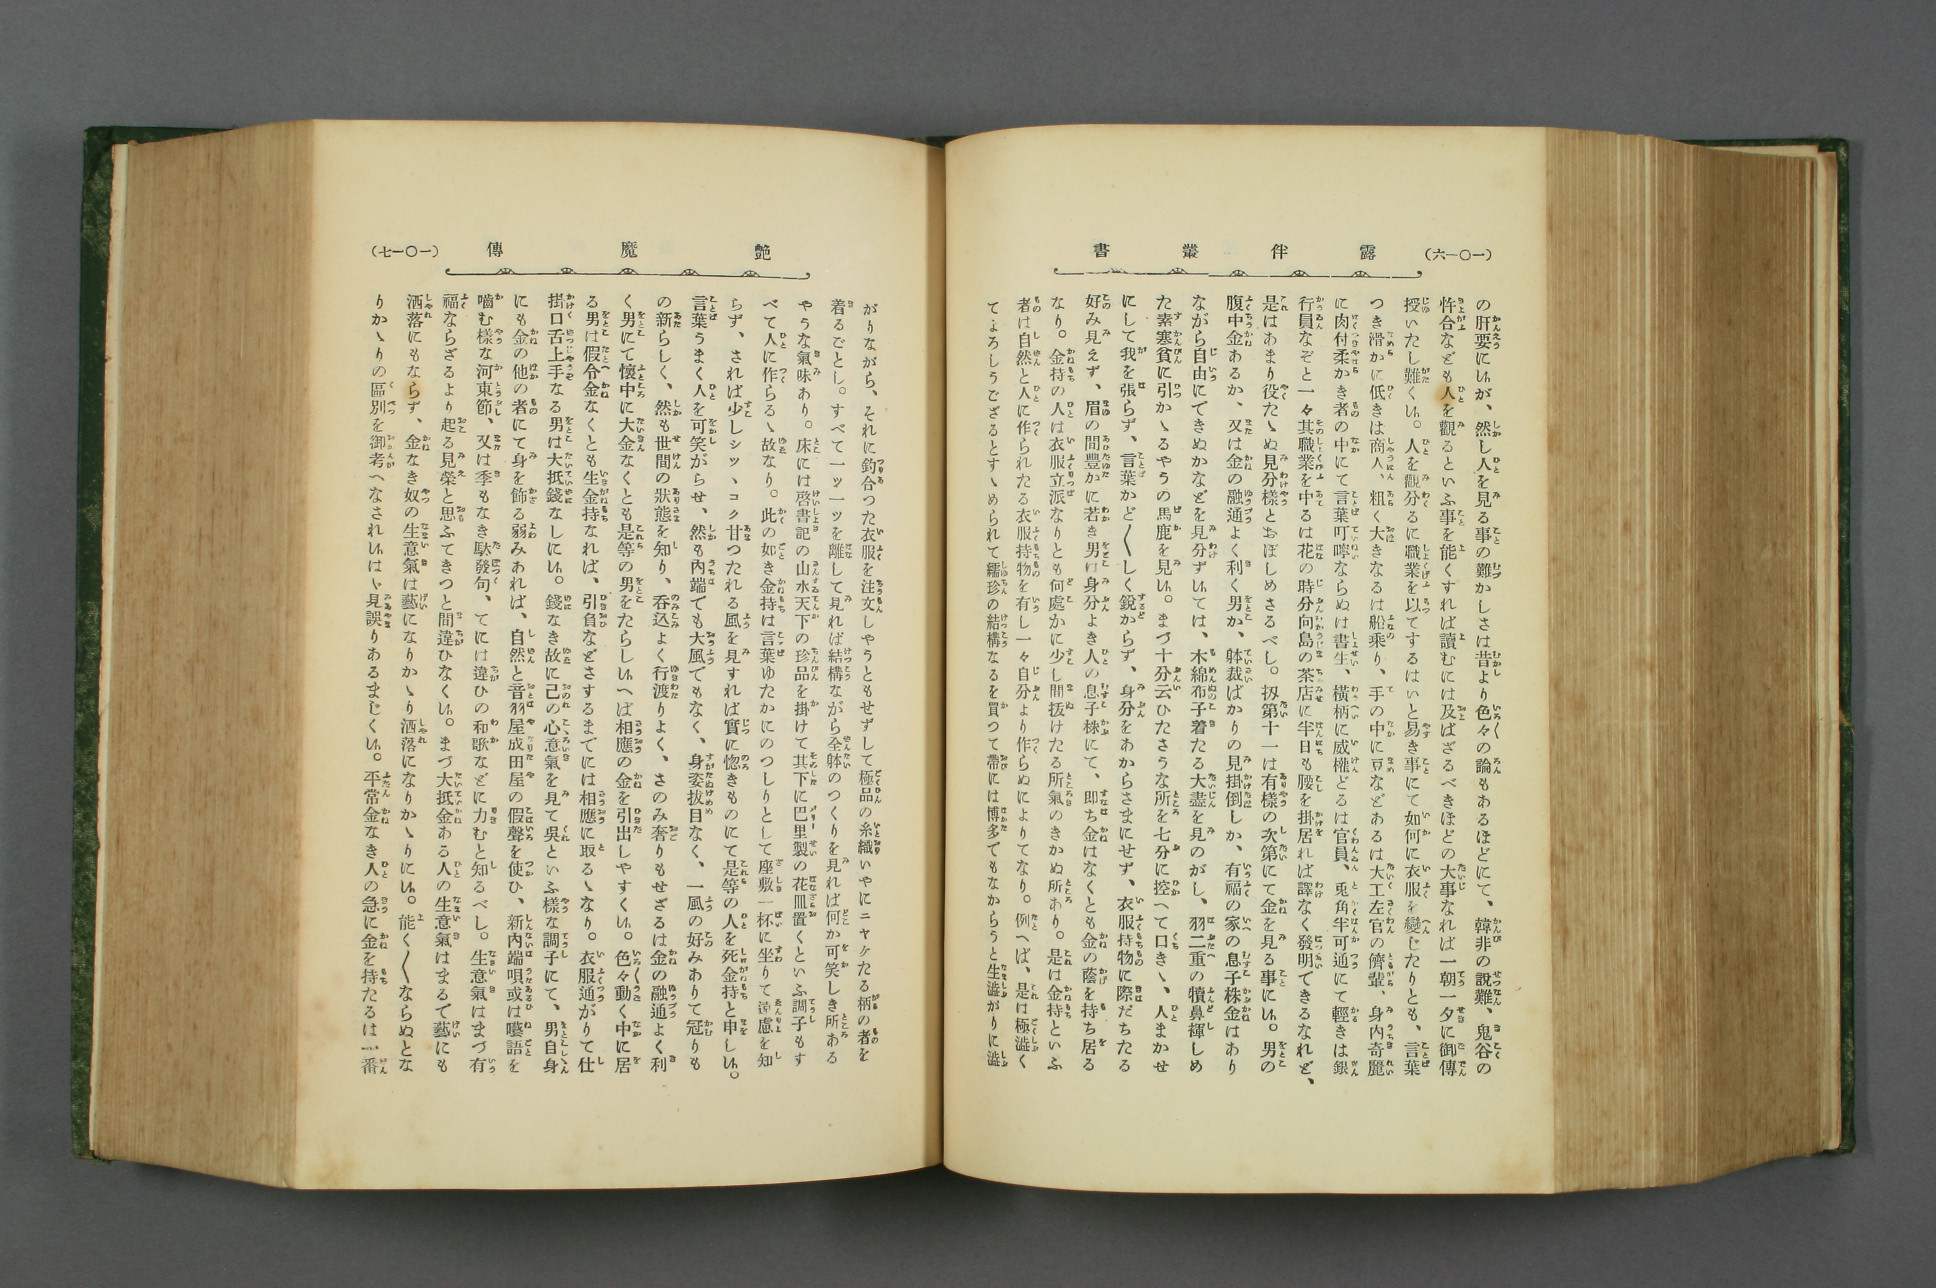 (一〇一六)
露伴叢書
の肝要に候が、然し人を見る事の難かしさは昔より色々の論もあるほどにて、韓非の説難、鬼谷の
忤合なども人を觀るといふ事を能くすれば讀むには及ばざるべきほどの大事なれば一朝一夕に御傳
授いたし難く候。人を觀分るに職業を以てするはいと易き事にて如何に衣服を變じたりとも、言葉
つき滑かに低きは商人、粗く大きなるは船乘り、手の中に豆などあるは大工左官の儕輩、身內奇麗
に肉付柔かき者の中にて言葉叮嚀ならぬは書生、橫柄に威權どるは官員、兎角半可通にて輕きは銀
行員なぞと一々其職業を中るは花の時分向島の茶店に半日も腰を掛居れば譯なく發明できるなれど、
是はあまり役たゝぬ見分樣とおぼしめさるべし。扨第十一は有樣の次第にて金を見る事に候。男の
腹中金あるか、又は金の融通よく利く男か、躰裁ばかりの見掛倒しか、有福の家の息子株金はあり
ながら自由にできぬかなどを見分ず候ては、木綿布子着たる大盡を見のがし、羽二重の犢鼻褌しめ
た素寒貧に引かゝるやうの馬鹿を見候。まづ十分云ひたさうな所を七分に控へて口きゝ、人まかせ
にして我を張らず、言葉かど〱しく鋭からず、身分をあからさまにせず、衣服持物に際だちたる
好み見えず、眉の間豐かに若き男は身分よき人の息子株にて、即ち金はなくとも金の蔭を持ち居る
なり。金持の人は衣服立派なりとも何處かに少し間拔けたる所氣のきかぬ所あり。是は金持といふ
者は自然と人に作られたる衣服持物を有し一々自分より作らぬによりてなり。例へば、是は極澁く
てよろしうござるとすゝめられて繻珍の結構なるを買つて帶には博多でもなからうと生澁がりに澁
艶魔傳
(一〇一七)
がりながら、それに釣合つた衣服を注文しやうともせずして極品の糸織いやにニヤケたる柄の者を
着るごとし。すべて一ッ一ッを離して見れば結構ながら全躰のつくりを見れば何か可笑しき所ある
やうな氣味あり。床には啓書記の山水天下の珍品を掛けて其下に巴里製の花皿置くといふ調子もす
べて人に作らるゝ故なり。此の如き金持は言葉ゆたかにのつしりとして座敷一杯に坐りて遠慮を知
らず、されば少しシッヽコク甘つたれる風を見すれば實に惚きものにて是等の人を死金持と申し候。
言葉うまく人を可笑がらせ、然も內端でも大風でもなく、身姿拔目なく、一風の好みありて冠りも
の新らしく、然も世間の狀態を知り、呑込よく行渡りよく、さのみ奢りもせざるは金の融通よく利
く男にて懷中に大金なくとも是等の男をたらし候へば相應の金を引出しやすく候。色々動く中に居
る男は假令金なくとも生金持なれば、引負などさするまでには相應に取るゝなり。衣服通がりて仕
掛口舌上手なる男は大抵錢なしに候。錢なき故に己の心意氣を見て吳といふ樣な調子にて、男自身
にも金の他の者にて身を飾る弱みあれば、自然と音羽屋成田屋の假聲を使ひ、新內端唄或は囈語を
嚙む樣な河東節、又は季もなき駄發句、てには違ひの和歌などに力むと知るべし。生意氣はまづ有
福ならざるより起る見榮と思ふてきつと間違ひなく候。まづ大抵金ある人の生意氣はまるで藝にも
洒落にもならず、金なき奴の生意氣は藝になりかゝり洒落になりかゝりに候。能く〱ならぬとな
りかゝりの區別を御考へなされ候はゞ見誤りあるまじく候。平常金なき人の急に金を持たるは一番